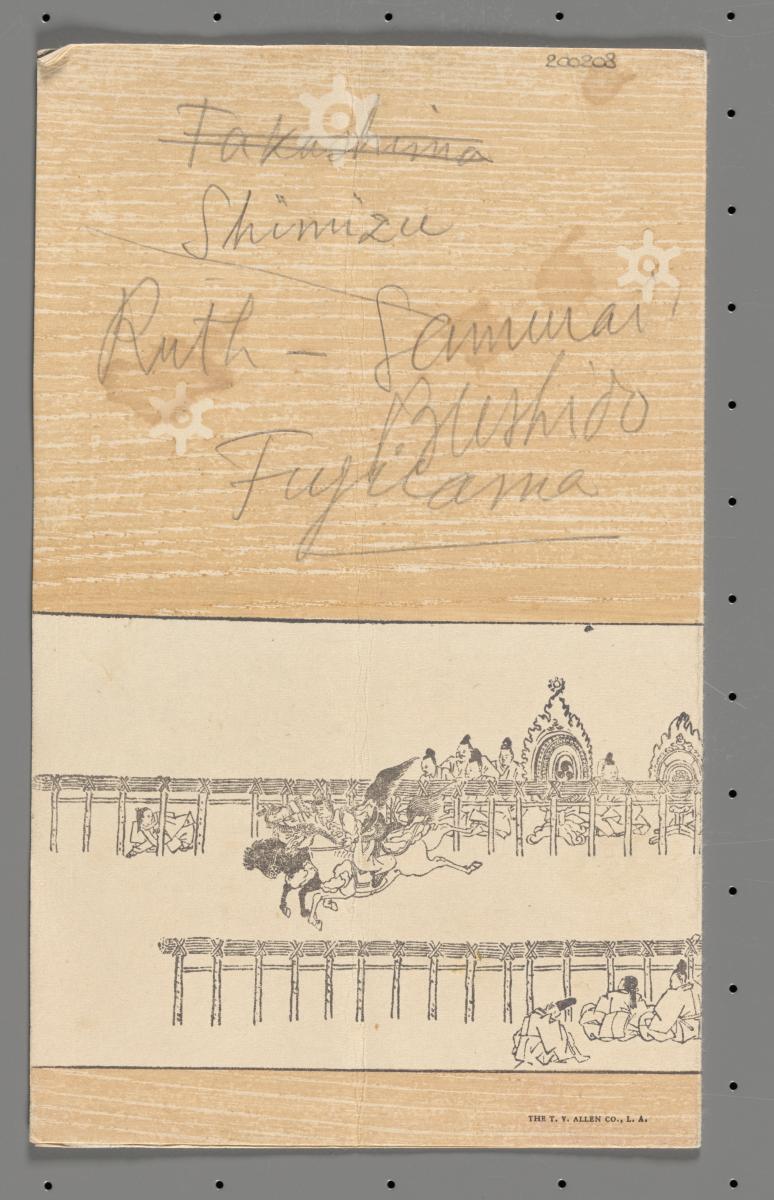 200208
Takashima
Shimizu
Ruth - Samurai
Bushido
Fujicama
THE T. V. ALLEN CO., L. A.